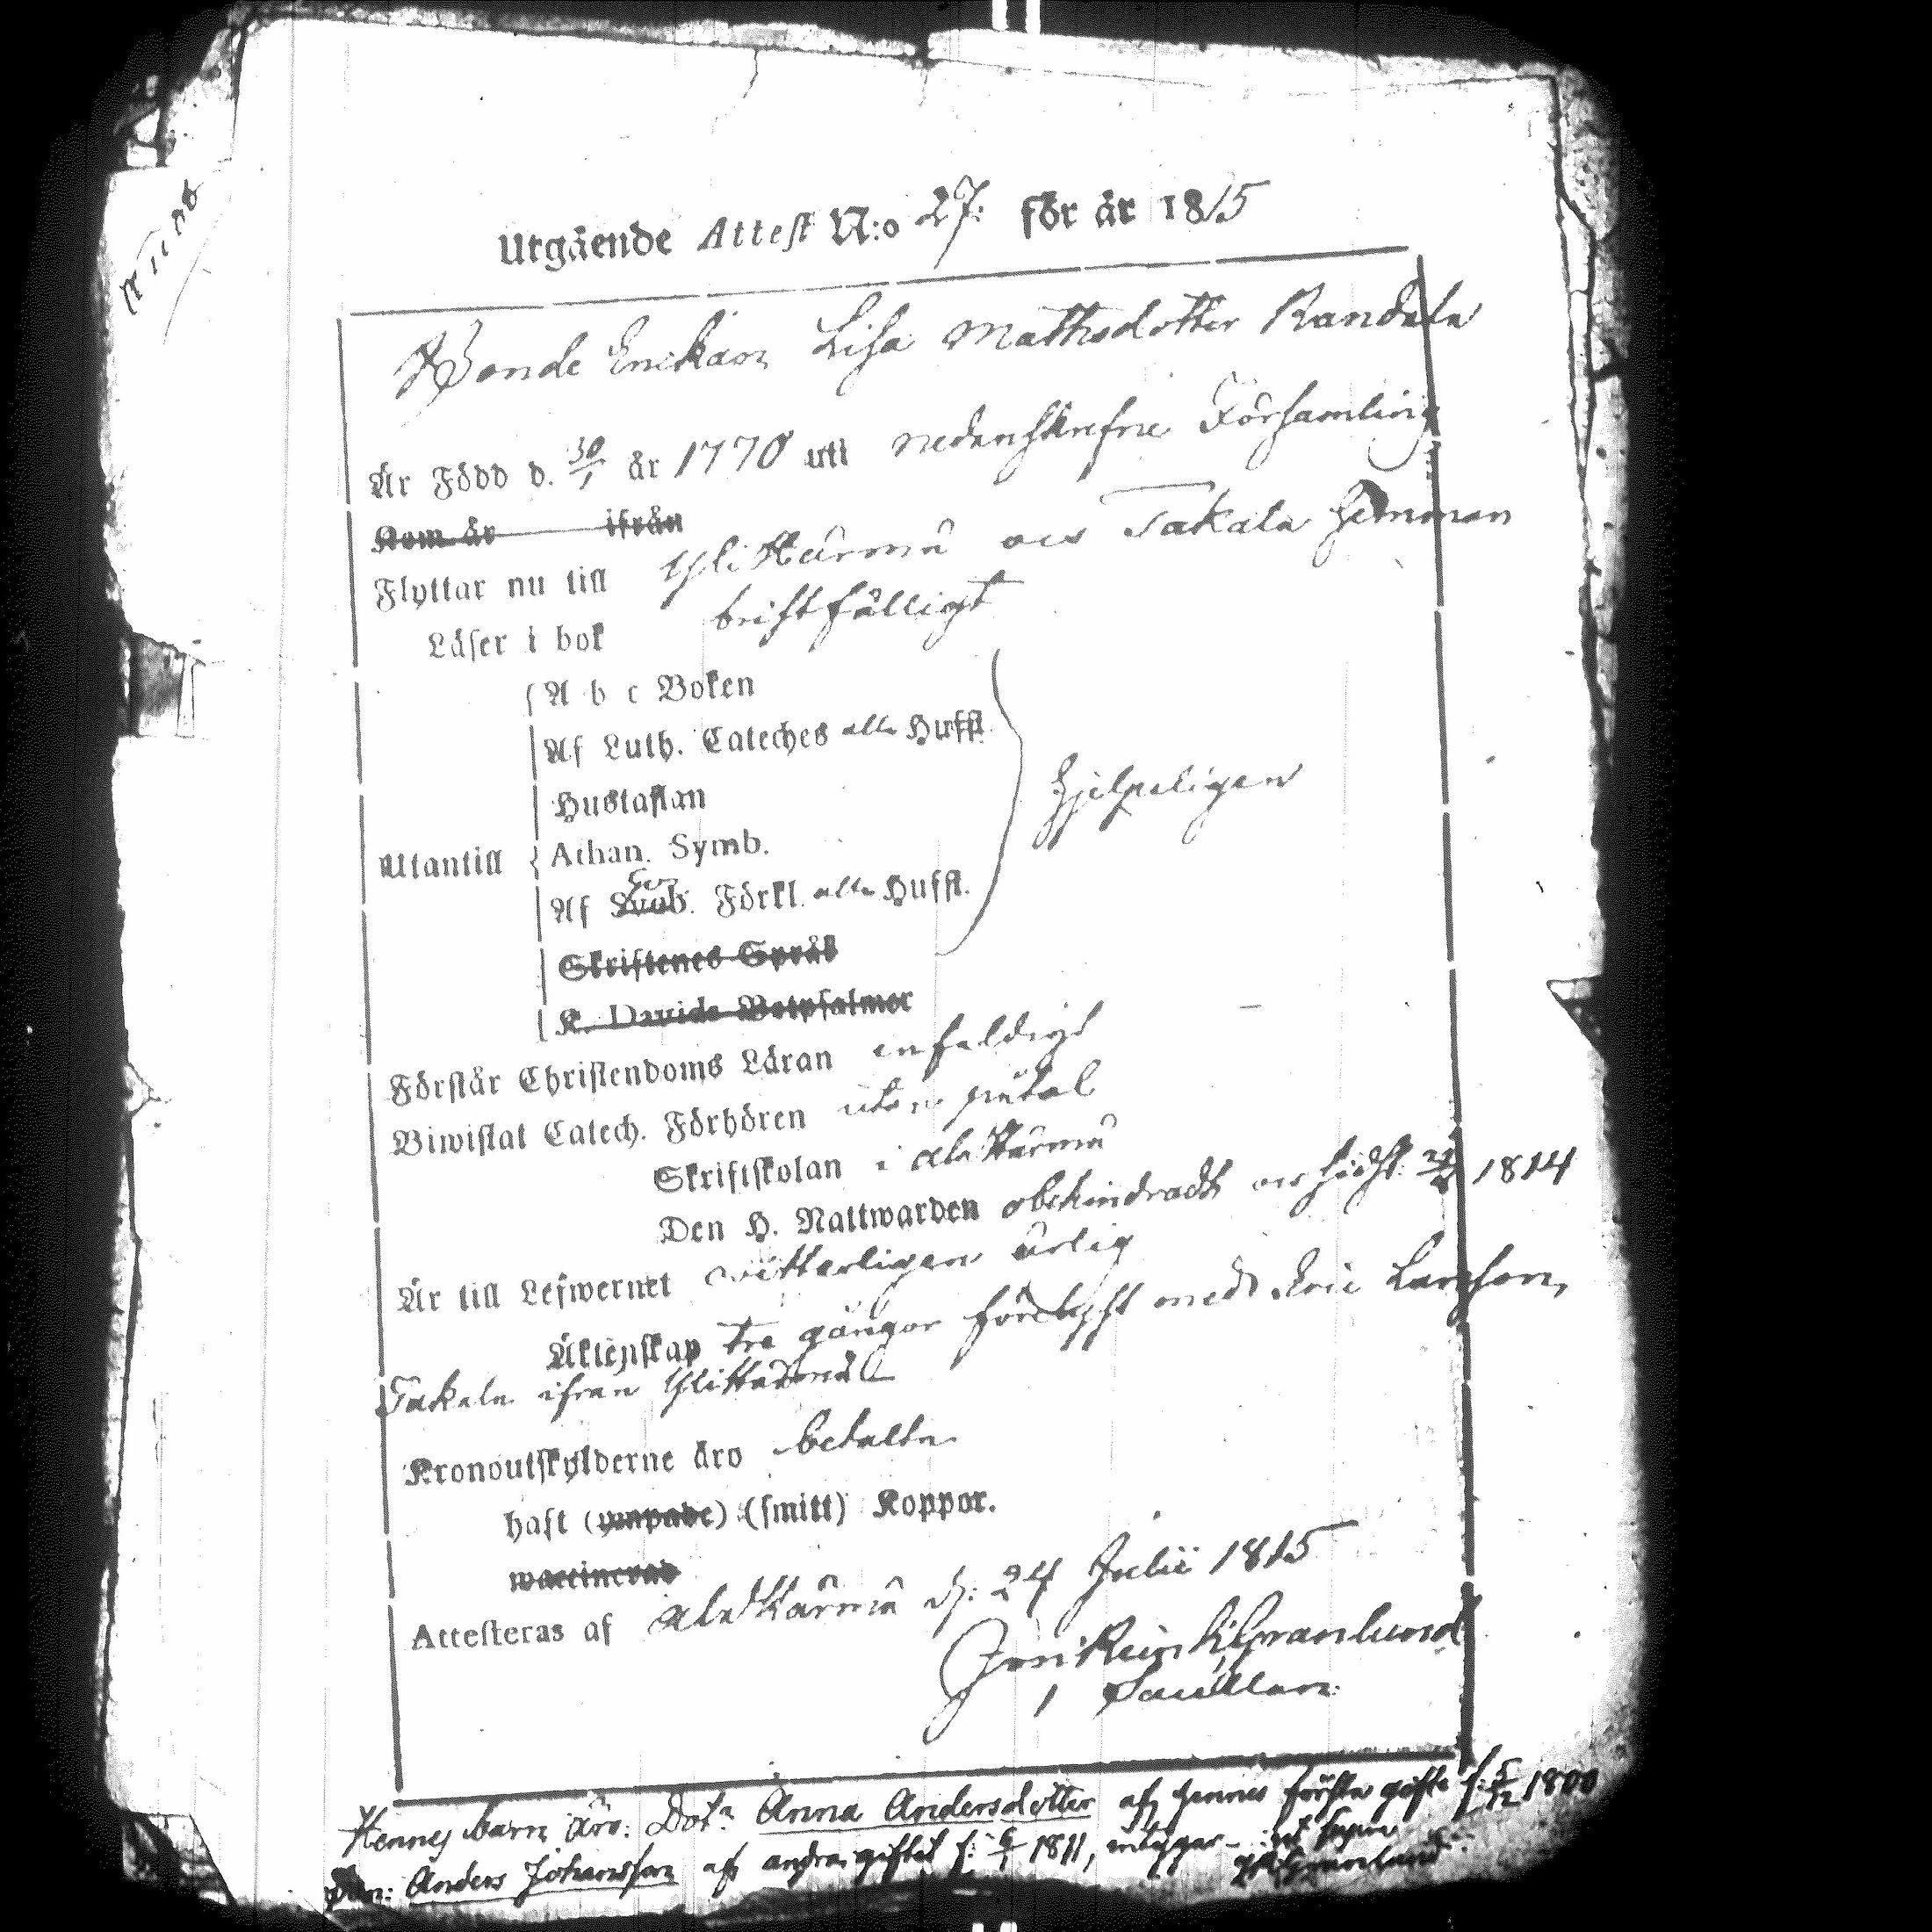 Utgående Attest N:o 27. för år 1815
Bonde Enckan Lisa Mattsdotter Randala
Är Född d. 30/1 år 1770 uti nedanskrefne Församling
Kom år ifrån
Flyttar nu till Ylikärmä och Takala Hemman
Läser i bok bristfälligt
A b c Boken
Af Luth. Cateches alla Hufst.
Hustaflan
Utantill Athan. Symb.
Af Sveb. Förkl. alla Hufst.
Skriftenes Språk
K. Davids Botpsalmer
hjelpeligen
Förstår Christendoms Läran enfaldigt
Biwistat Catech. Förhören utan påtal
Skriftskolan i Alakärmä
Den H. Nattwarden obehindradt och sidst. 1814
Är till Lefwernet witterligen ärlig
Äktenskap tre gångor förelyst med Eric Larsson
Takala ifrån Ylikärmä
Kronoutskylderne äro betalte
haft (ympade) (smitt) Koppor.
waccinerad
Attesteras af Alakärmä d: 24 Julii 1815
Granlund
Hennes barn äro: Dotr Anna Andersdotter af hennes första gifte f: 5/12 1800
Son: Anders Johansson af andra giftet f: 6/1 1811, intygar
Granlund